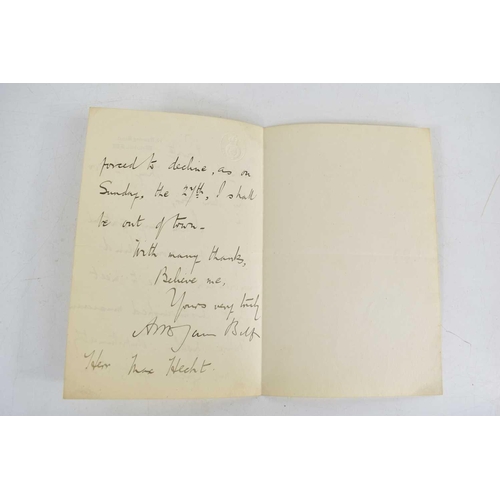 forced to decline, as on
Sunday, the 27th, I shall
be out of town -
With many thanks,
Believe me,
Yours very truly
Herr Max Hecht.